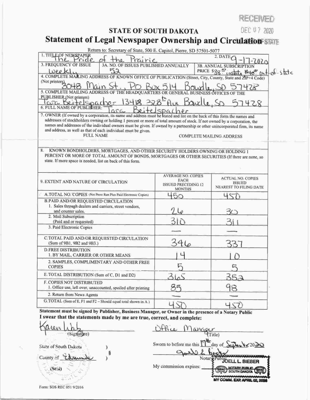 RECEIVED
DEC 07 2020
STATE OF SOUTH DAKOTA
Statement of Legal Newspaper Ownership and Circulation
Return to: Secretary of State, 500 E. Capitol, Pierre, SD 57501-5077
1. TITLE OF NEWSPAPER
The Pride of the Prairie
2. DATE
9-17-2020
3. FREQUENCY OF ISSUE
Weekly
3A. NO. OF ISSUES PUBLISHED ANNUALLY
52
3B. ANNUAL SUBSCRIPTION
PRICE
out of state
4. COMPLETE MAILING ADDRESS OF KNOWN OFFICE OF PUBLICATION (Street, City, County, State and Zip+4 Code)
(Not printers)
3048 Main St., PO Box 514 Bowdle, SD 57428
5. COMPLETE MAILING ADDRESS OF THE HEADQUARTERS OR GENERAL BUSINESS OFFICES OF THE
PUBLISHER (Not printer)
Tara Beitelspacher 13418 328th Ave Bowdle, SD 57428
6. FULL NAME OF PUBLISHER
Tara Beitelspacher
7. OWNER (If owned by a corporation, its name and address must be stated and list on the back of this form the names and
addresses of stockholders owning or holding 1 percent or more of total amount of stock. If not owned by a corporation, the
names and addresses of the individual owners must be given. If owned by a partnership or other unincorporated firm, its name
and address, as well as that of each individual must be given.
FULL NAME
COMPLETE MAILING ADDRESS
8. KNOWN BONDHOLDERS, MORTGAGEES, AND OTHER SECURITY HOLDERS OWNING OR HOLDING 1
PERCENT OR MORE OF TOTAL AMOUNT OF BONDS, MORTGAGES OR OTHER SECURITIES (If there are none, so
state. If more space is needed, list on back of this form.
9. EXTENT AND NATURE OF CIRCULATION
AVERAGE NO. COPIES
EACH
ISSUED PRECEDING 12
MONTHS
ACTUAL NO. COPIES
ISSUED
NEAREST TO FILING DATE
A. TOTAL NO. COPIES
450
450
B. PAID AND/OR REQUESTED CIRCULATION
1. Sales through dealers and carriers, street vendors,
and counter sales.
26
2. Mail Subscription
(Paid and or requested)
310
311
3. Paid Electronic Copies
C. TOTAL PAID AND/OR REQUESTED CIRCULATION
(Sum of 9B1, 9B2 and 9B3)
346
337
D. FREE DISTRIBUTION
1. BY MAIL, CARRIER OR OTHER MEANS
14
10
2. SAMPLES, COMPLIMENTARY AND OTHER FREE
COPIES
5
5
E. TOTAL DISTRIBUTION (Sum of C, D1 and D2)
365
352
F. COPIES NOT DISTRIBUTED
1. Office use, left over, unaccounted, spoiled after printing
85
98
2. Return from News Agents
G. TOTAL (Sum of E, F1 and F2 - Should equal total shown in A.)
450
450
Statement must be signed by Publisher, Business Manager, or Owner in the presence of a Notary Public
I swear that the statements made by me are true, correct, and complete:
Office Manager
(Signature)
(Title)
State of South Dakota
County of
(Seal)
Sworn to before me this 17th day of September 2020
My commission expires
JOELL R. BIEBER
NOTARY PUBLIC
SOUTH DAKOTA